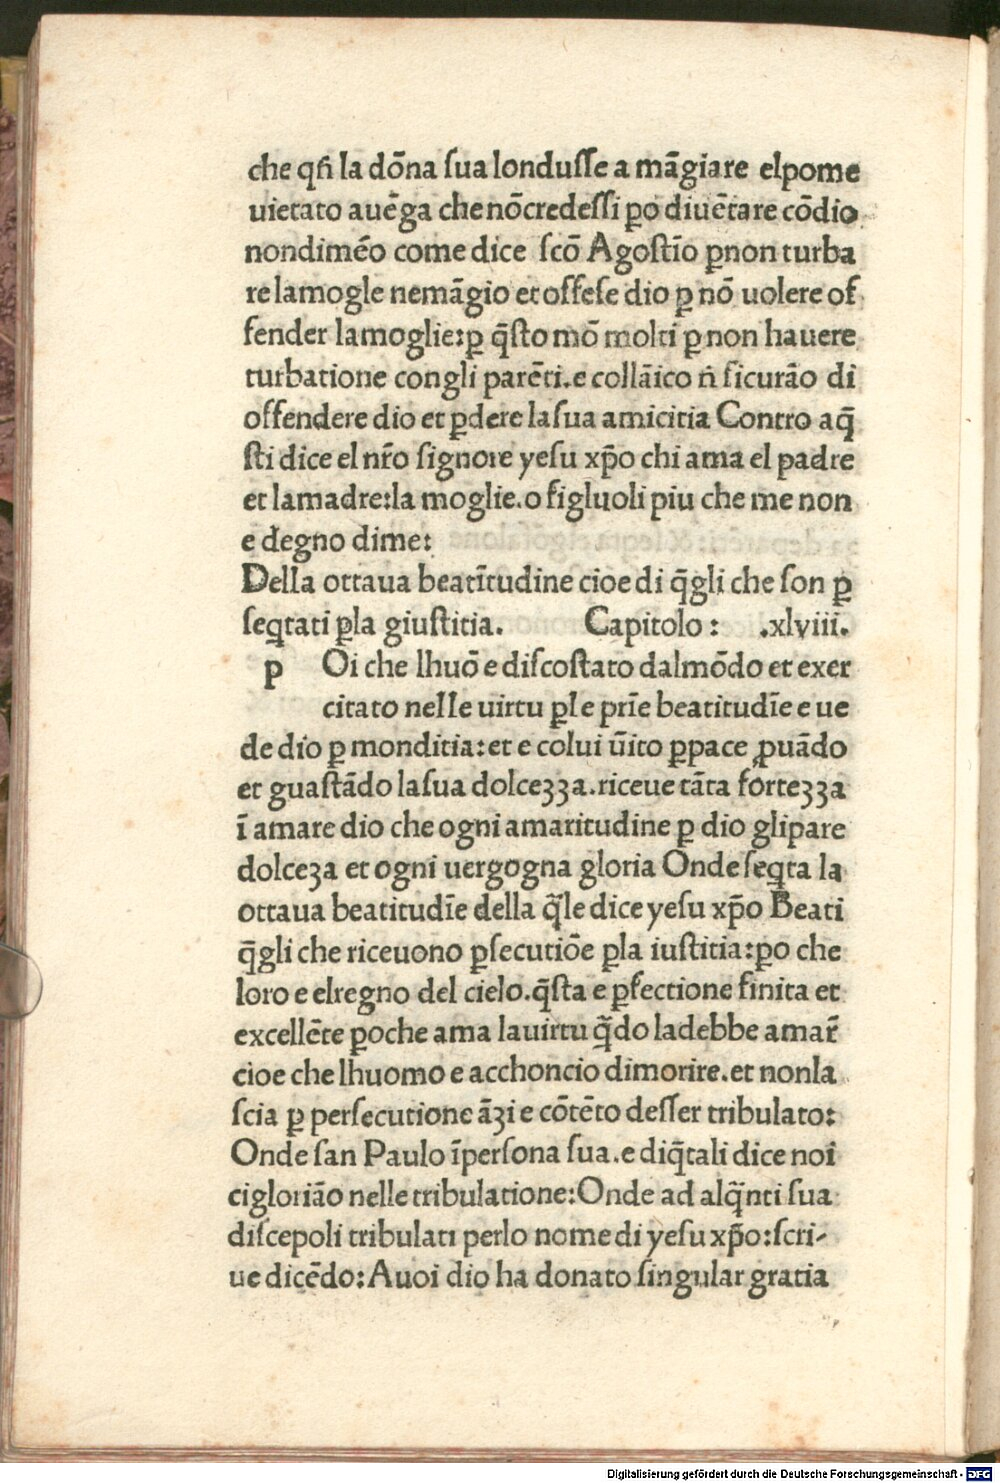 che qñ la dōna ſua londuſſe a māgiare elpome
uietato auēga che nōcredeſſi ꝑo diuētare cōdio
nondimēo come dice ſcō Agoſtīo ꝑnon turba
re lamogle nemāgio et offeſe dio ꝑ nō uolere of
fender lamoglie:ꝑ q̄ſto mō molti ꝑ non hauere
turbatione congli parēti.e collāico ñ ſicurāo di
offendere dio et ꝑdere laſua amicitia Contro aq̄
ſti dice el nr̄o ſignore yeſu xp̄o chi ama el padre
et lamadre:la moglie.o figluoli piu che me non
e degno dime:
Della ottaua beatītudine cioe di q̄gli che ſon ꝑ
ſeqtati ꝑla giuſtitia. Capitolo: .xlviii.
p Oi che lhuō e diſcoſtato dalmōdo et exer
citato nelle uirtu ꝑle prīe beatitudīe e ue
de dio ꝑ monditia:et e colui ūito ꝑpace ꝓuādo
et guaſtādo laſua dolceʒʒa.riceue tāta forteʒʒa
ī amare dio che ogni amaritudine ꝑ dio glipare
dolceʒa et ogni uergogna gloria Onde ſeqta la
ottaua beatitudīe della q̄le dice yeſu xp̄o Beati
q̄gli che riceuono ꝑſecutiōe ꝑla iuſtitia:ꝑo che
loro e elregno del cielo.q̄ſta e ꝑfectione finita et
excellēte ꝑoche ama lauirtu q̄do ladebbe amar̄
cioe che lhuomo e acchoncio dimorire.et nonla
ſcia ꝑ perſecutione āʒi e cōtēto deſſer tribulato:
Onde ſan Paulo īperſona ſua.e diq̄tali dice noi
cigloriāo nelle tribulatione:Onde ad alq̄nti ſua
diſcepoli tribulati perlo nome di yeſu xp̄o:ſcri-
ue dicēdo:Auoi dio ha donato ſingular gratia
Digitalisierung gefördert durch die Deutsche Forschungsgemeinschaft - DFG